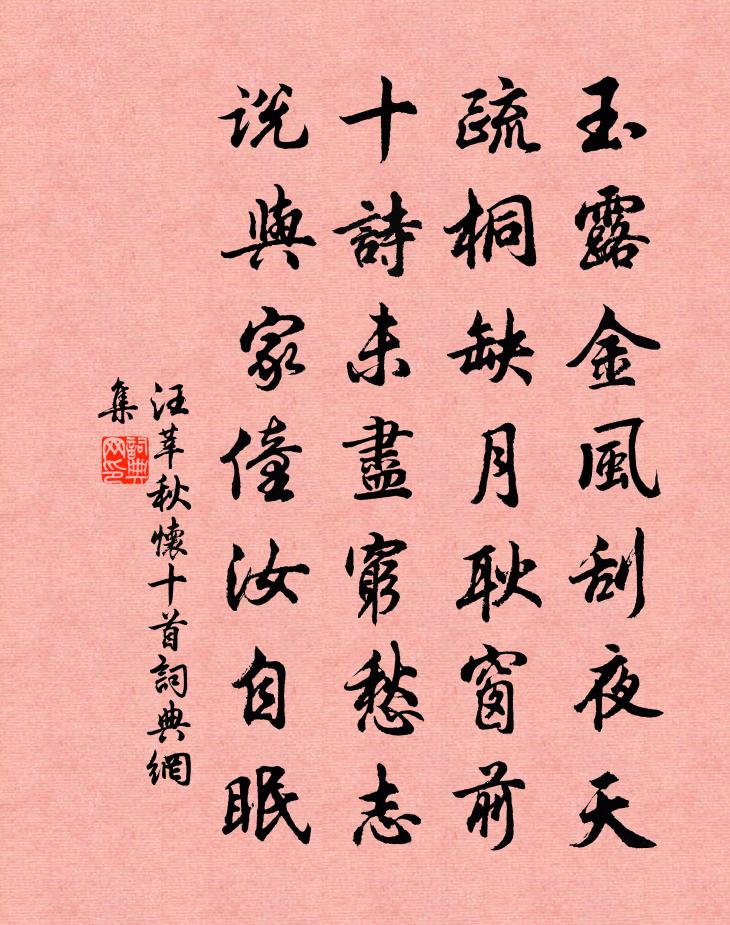 玉露金風刮夜天
疏桐缺月耿窗前
十詩未盡窮愁志
説與家僮汝自眠
汪莘秋懷十首詞典網
集
詞典
网印